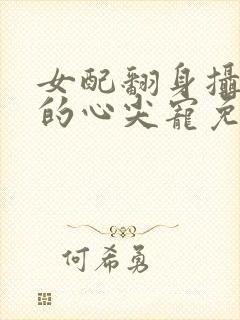 女配翻身攝
的心尖寵免
何希勇